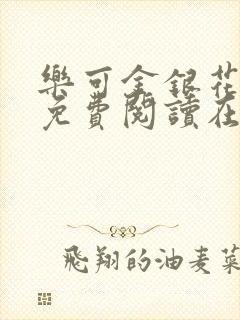 樂可金銀花
免費閱讀在
飛翔的油麦菜